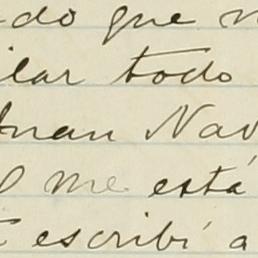 do que
ilar todo
Juan Nav
me está
escribí a